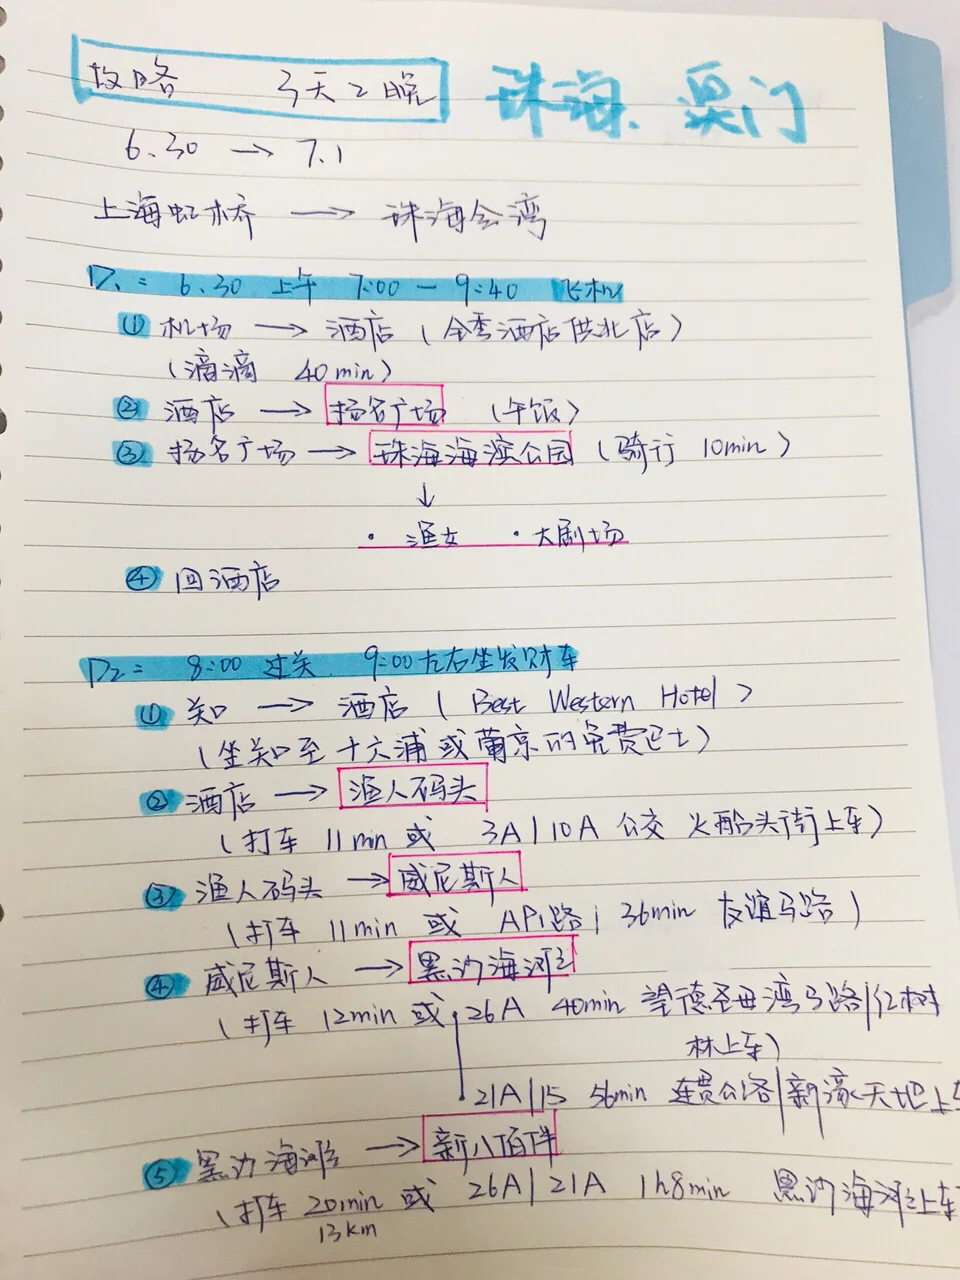 攻略 3天2晚 珠海、澳门
6.30 → 7.1
上海虹桥 → 珠海金湾
D1: 6.30 上午 7:00 - 9:40 飞机
① 机场 → 酒店 (全季酒店拱北店)
(滴滴 40min)
② 酒店 → 扬名广场 (午饭)
③ 扬名广场 → 珠海海滨公园 (骑行 10min)
↓
· 渔女 · 大剧场
④ 回酒店
D2: 8:00 过关 9:00左右坐发财车
① 关口 → 酒店 (Best Western Hotel)
(坐关口至十六浦或葡京的免费巴士)
② 酒店 → 渔人码头
(打车 11min 或 3A|10A 公交 火船头街上车)
③ 渔人码头 → 威尼斯人
(打车 11min 或 AP1路| 36min 友谊马路)
④ 威尼斯人 → 黑沙海滩
(打车 12min 或 26A 40min 望德圣母湾马路|红树
林上车)
21A|15 56min 连贯公路|新濠天地上车
⑤ 黑沙海滩 → 新八佰伴
(打车 20min 或 26A|21A 1h8min 黑沙海滩上车
13km